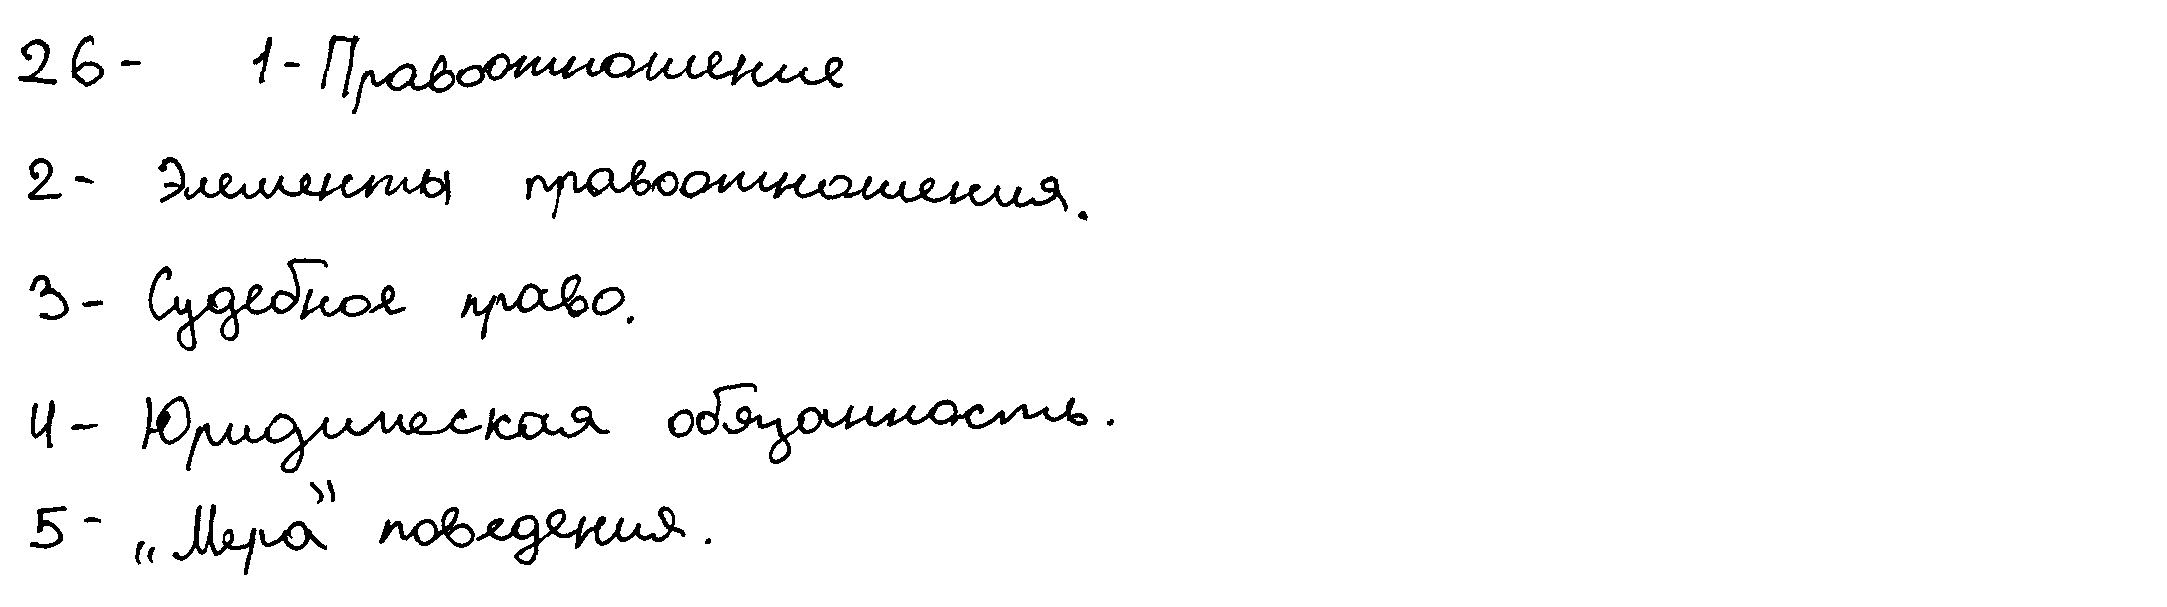 26- 1- Правоотношение
2- Элементы правоотношения.
3- Судебное право.
4- Юридическая обязанность.
5- „Мера” поведения.